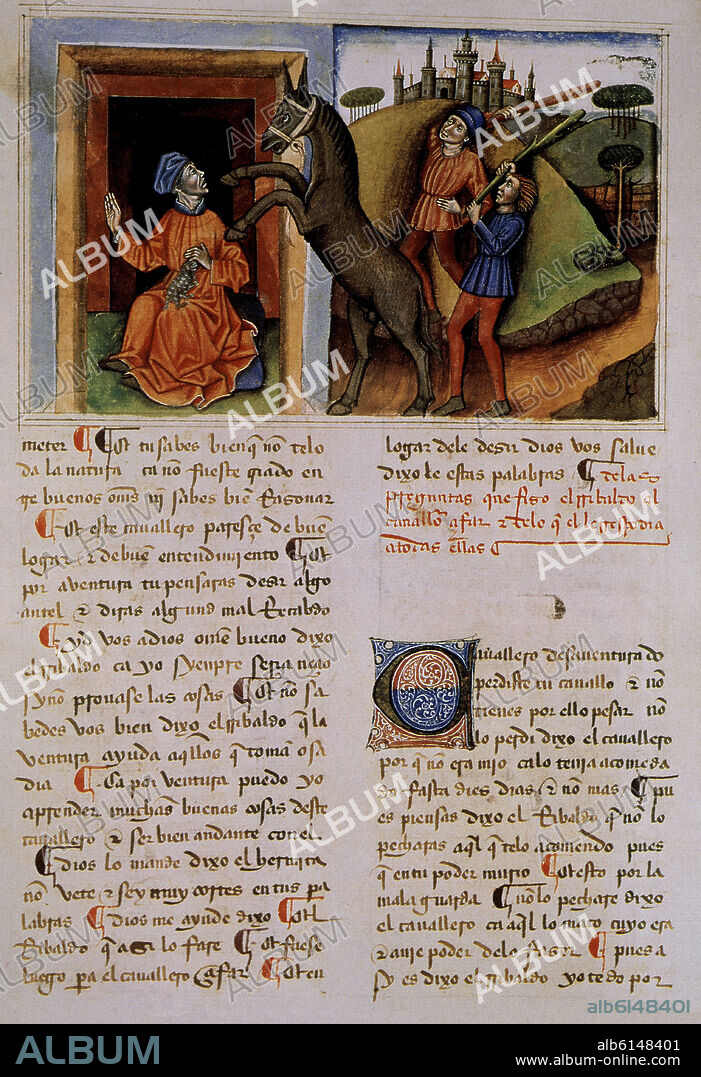 meter Et tu sabes bien q̃ non telo
da la natura ca non fueste criado en
tre buenos omẽs nĩ sabes biẽ Razonar
Et este cauallero paresçe de buẽ
logar ⁊ de buẽ entendimiento Et
por auentura tu pensaras desir algo
antel ⁊ diras algund mal Recabdo
Yd vos a dios omẽ bueno dixo
el ribaldo ca yo syenpre seria neçio
sy nõ prouase las cosas Et nõ sa
bedes vos bien dixo el rribaldo que la
ventura ayuda aq̃llos q̃ toman osa
dia Ca por ventura puedo yo
aprender muchas buenas cosas deste
cauallero ⁊ ser bien andante con el
Dios lo mande dixo el hermita
no vete ⁊ sey muy cortes en tus pa
labras Dios me ayude dixo El
Ribaldo q̃ asi lo fare Et fuese
luego pa el cauallero çifar Et en
logar dele desir dios vos salue
dixo le estas palabras De las
preguntas que fiso el ribaldo al
cauallero çifar ⁊ delo que el le respõdia
a todas ellas
Cauallero desauenturado
perdiste tu cauallo ⁊ nõ
tienes por ello pesar non
lo perdi dixo el cauallero
por q̃ nõ era mio ca lo tenia acomẽda
do fasta dies dias ⁊ nõ mas Pu
es piensas dixo el Ribaldo q̃ nõ lo
pecharas aq̃l q̃ telo acomendo pues
q̃ en tu poder murio Et esto por la
mala guarda Nõ lo pechare dixo
el cauallero ca aq̃l lo mato cuyo era
⁊ auie poder delo faser Pues a
sy es dixo el rribaldo yo te do por
ALBUM
alb6148401
ALBUM
alb6148401
www.album-online.com